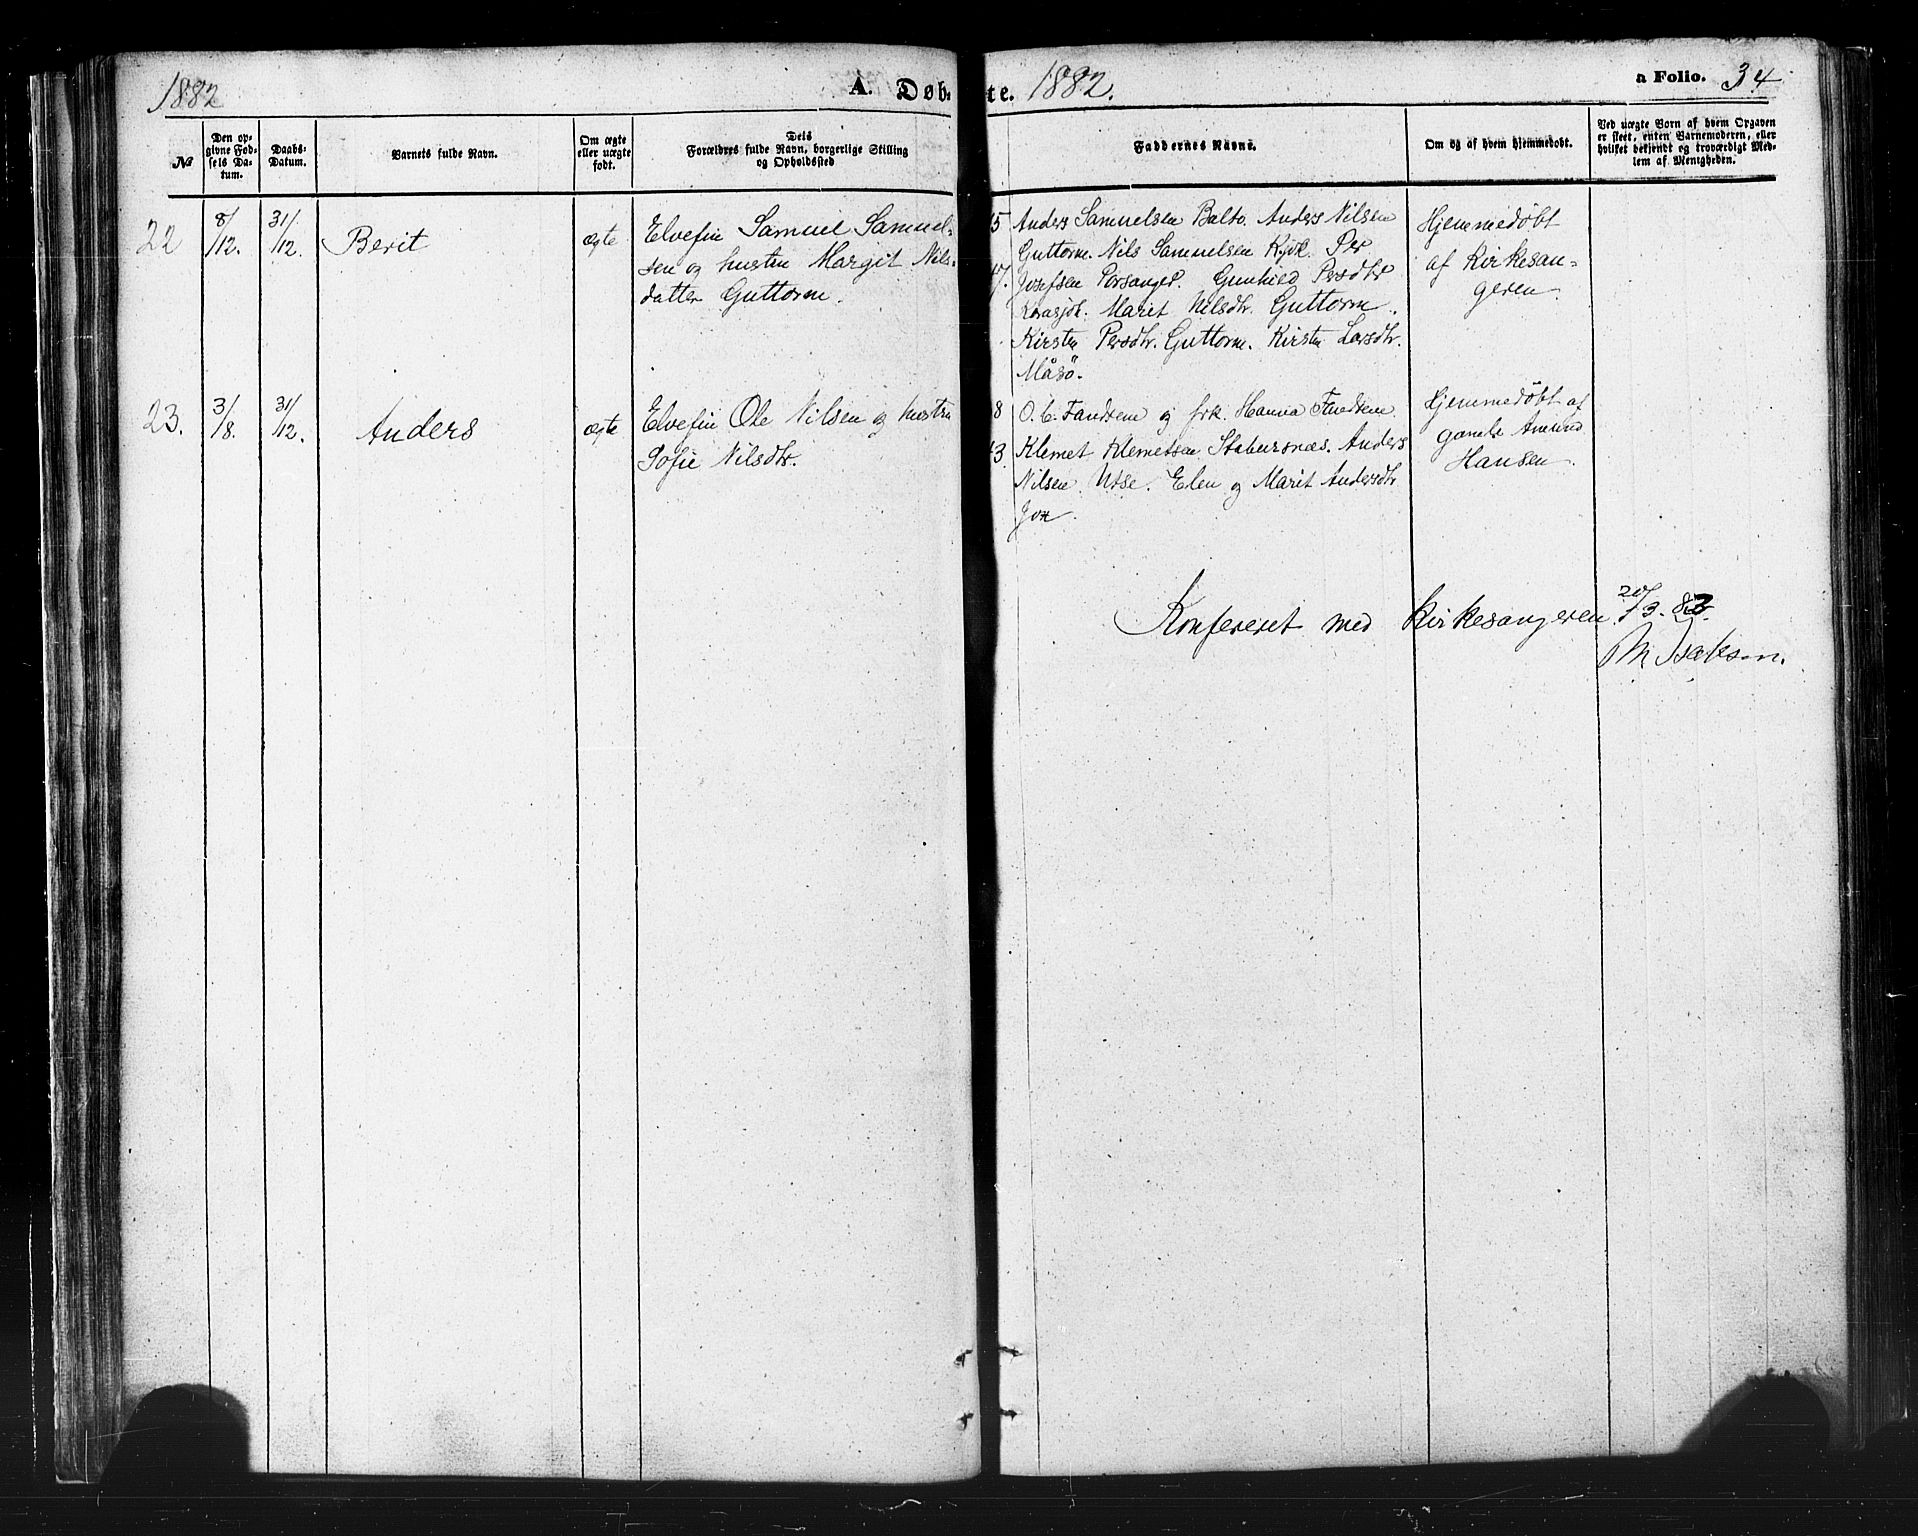 1882
A. Døb-
te. 1882.
a Folio. 34
No
Den op-
givne Fød-
sels Da-
tum.
Daabs-
Datum.
Barnets fulde Navn.
Om ægte
eller uægte
født.
Dets
Forældres fulde Navn, borgerlige Stilling
og Opholdssted
Faddernes Navne.
Om og af hvem hjemmedøbt.
Ved uægte Børn af hvem Opgaven
er skeet, enten Barnemoderen, eller
hvilket bekjendt og troværdigt Med-
lem af Menigheden.
22
8/12.
31/12.
Berit
ægte
Elvefin Samuel Samuel-
sen og hustru Margit Nils-
datter Guttorm.
Anders Samuelsen Balto. Anders Nilsen
Guttorm. Nils Samuelsen Kjok. Per
Josefsen Porsanger. Gunhild Persdtr
Karasjok. Marit Nilsdtr. Guttorm.
Kirsten Persdtr. Guttorm. Kirsten Larsdtr.
Måsö.
Hjemmedøbt
af Kirkesan-
geren.
23.
3/8.
31/12.
Anders
ægte
Elvefin Ole Nilsen og hustru
Sofie Nilsdtr.
O. C. og frk. Hanna
Klemet Klemetsen Stabursnæs. Anders
Nilsen Utse. Elen og Marit Andersdtr
Jox.
Hjemmedøbt af
gamle Amund
Hansen.
Konfereret med Kirkesangeren 20/3. 83.